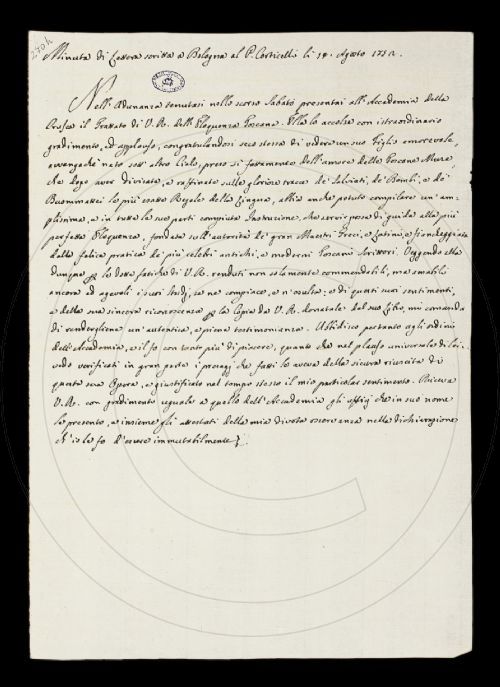 2704
Minuta di Lettera scritta a Bologna al P. Corticelli li 19. Agosto 1752.
Nell' Adunanza tenutasi nello scorso Sabato presentai all' Accademia della
Crusca il Trattato di V. R. della Eloquenza Toscana. Ella lo accolse con istraordinario
gradimento, ed applauso, congratulandosi seco stessa di vedere un suo Figlio amorevole,
avvengachè nato sott' altro Cielo, preso sì fortemente dell' amore della Toscana Musa,
che dopo aver divisate, e raffinate sulle gloriose tracce de' Salviati, de' Bembi, e de'
Buommattei le più esatte Regole della Lingua, abbia anche potuto compilare un' am-
plissima, e in tutte le sue parti compiuta Instruzione, che serve possa di guida alla più
perfetta Eloquenza, fondata sull' autorità de' gran Maestri Greci, e Latini, e fiancheggiata
dalla felice pratica de' più celebri antichi, e moderni Toscani Scrittori. Veggendo ella
dunque per le dotte fatiche di V. R. renduti non solamente commendabili, ma amabili
ancora ed agevoli i suoi Studj, se ne compiace, e n' esulta: e di questi suoi sentimenti,
e della sua sincera riconoscenza per la copia da V. R. donatale del suo Libro, mi comanda
di renderglene un' autentica, e piena testimonianza. Ubbidisco pertanto agli ordini
dell' Accademia, e il fo con tanto più di piacere, quanto che nel plauso universale di lei
vedo verificati in gran parte i presagj che fatti io aveva della sicura riuscita di
questa sua Opera, e giustificato nel tempo stesso il mio particolar sentimento. Riceva
V. R. con gradimento eguale a quello dell' Accademia gli uffizj che in suo nome
le presento, e insieme gli attestati della mia divota osservanza nella dichiarazione
ch' io le fo d' essere immutabilmente